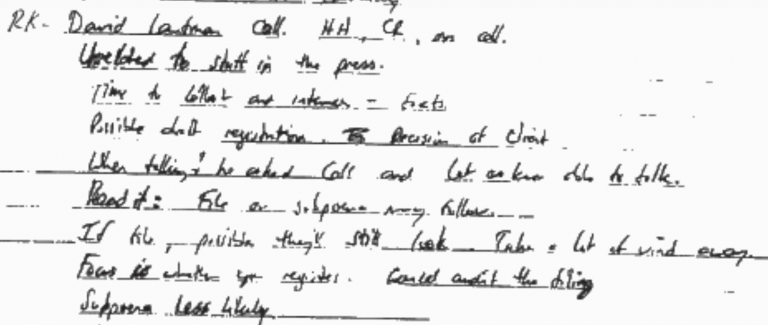 RK- David Laufman Call. HH, CR, on call.
Unrelated to stuff in the press.
Time to collect and interview - facts
Possible draft registration. Decision of Client.
When talking, he asked Call and let us know able to talk.
Read it: File or subpoena may follow.
If file, possible they'll still look. Takes a lot of wind away.
Focus is whether you register. Could audit the filing
Subpoena less likely